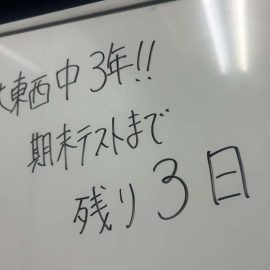 東西中3年!!
期末テストまで
残り3日